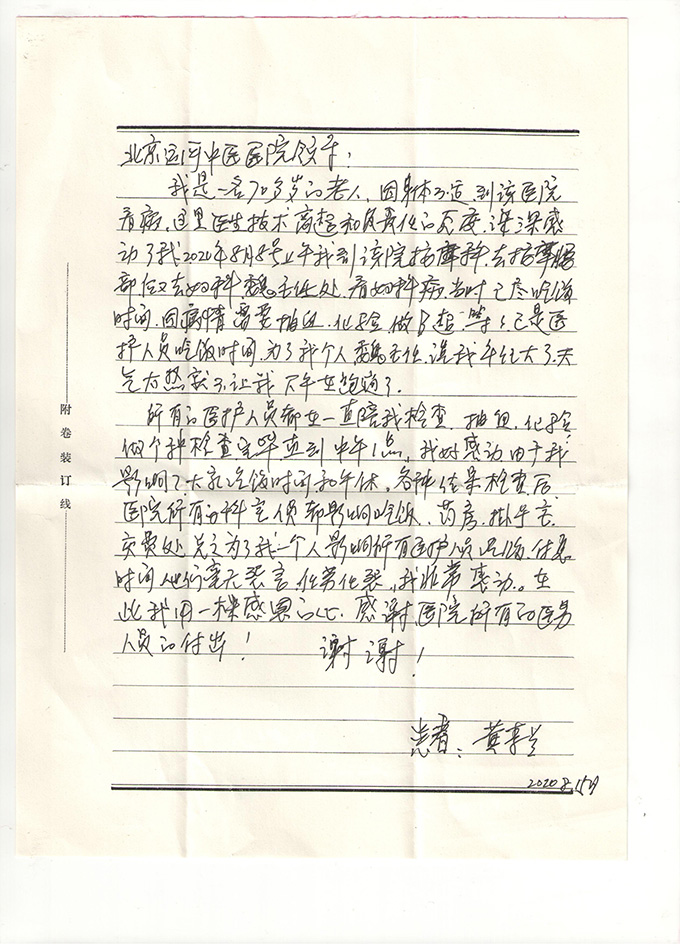 北京运河中医医院领导：
我是一名70多岁的老人，因身体不适，到该医院
看病，这里医生技术高超和服务优的态度，深深感
动了我2020年8月8号上午我到该院按摩科，去按摩腰
部位又去妇科，魏主任处，看妇科病，当时已尽吃饭
时间，因病情需要抽血，化验做B超等等已是医
护人员吃饭时间，为了我个人魏主任，说我年纪大了，天
气太热就不让我下午在跑趟了。
所有的医护人员都在一直陪我检查，抽血，化验，
做个种检查完毕直到中午1点，我好感动由于我
影响了大家吃饭时间和午休，各种结果检查后
医院所有的科室人员都影响吃饭，药房，挂号室
交费处总之为了我一个人影响所有医护人员吃饭，休息
时间他们毫无怨言，任劳任怨，我非常感动。在
此我用一棵感恩的心，感谢医院所有的医务
人员的付出！ 谢谢！
患者：黄
2020.8.15日
附卷装订线